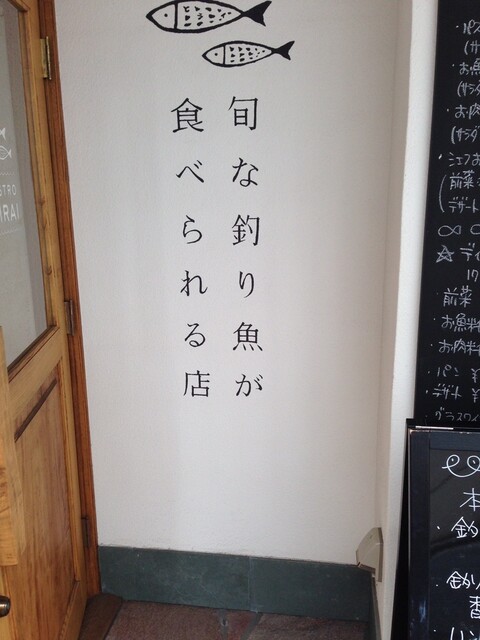 旬な釣り魚が
食べられる店
STRO
RAI
・パス
(サ
・お魚
(サラダ
・お肉
(サラダ
・シェフお
(前菜
デザート
☆ディ
17
・前菜
・お魚料
・お肉料
・パン ¥
・デザート ¥
・グラスワイ
本
・釣
・釣り
香